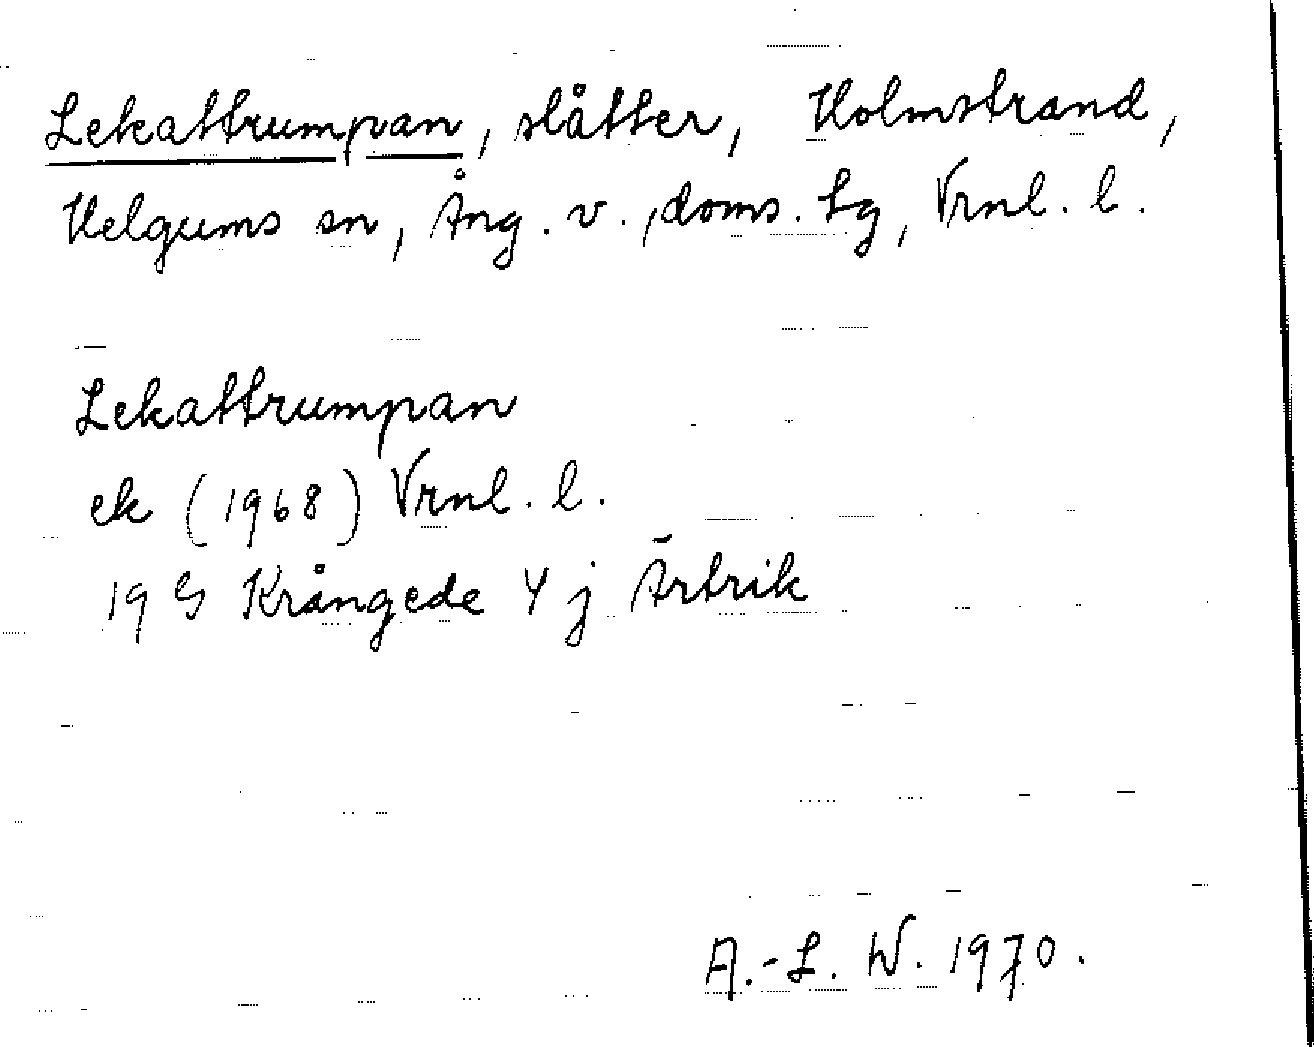 Lekattrumpan, slåtter, Holmstrand,
Helgums sn, Ång. v., doms. Lg, Vrnl. l.
Lekattrumpan
ek (1968) Vrnl. l.
19 G Krångede 4 j Ärtrik
A.-L. W. 1970.